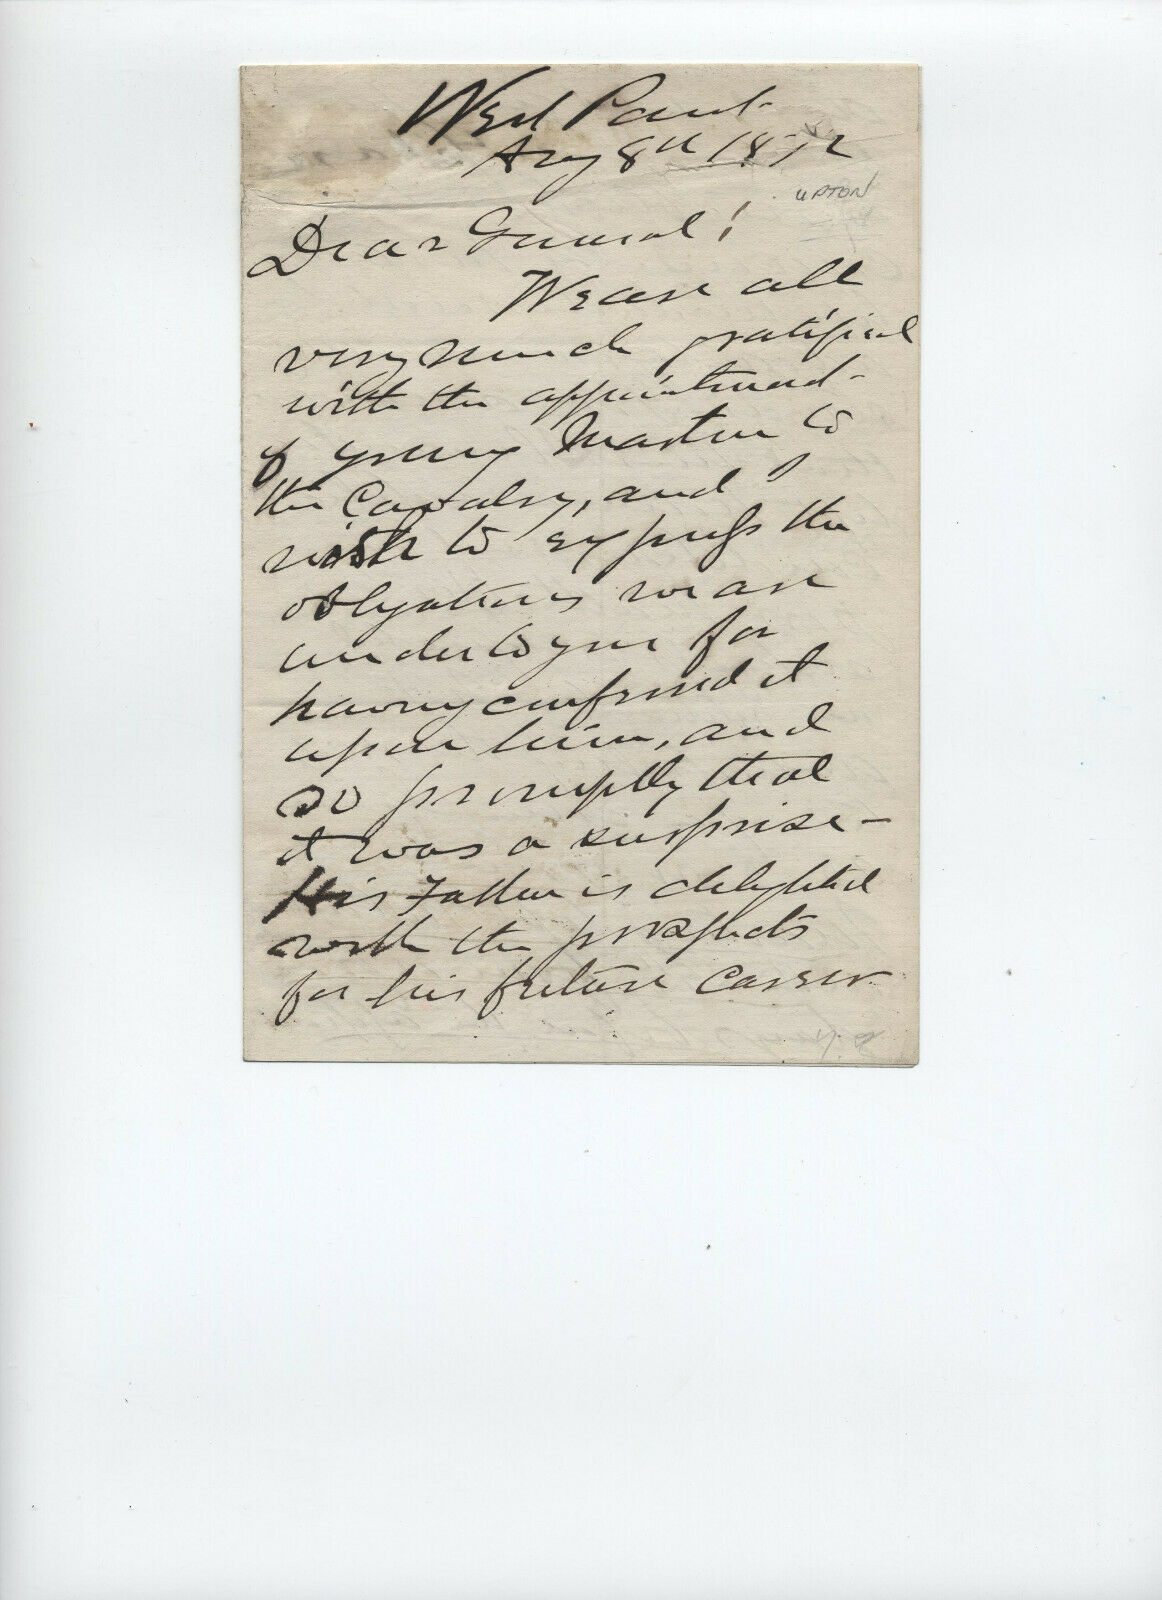 West Point
Aug 8th 1872
UPTON
Dear General!
We are all
very much gratified
with the appointment
of young Martin to
the Cavalry, and
wish to express the
obligations we are
under to you for
having conferred it
upon him, and
so promptly that
it was a surprise –
His Father is delighted
with the prospects
for his future career